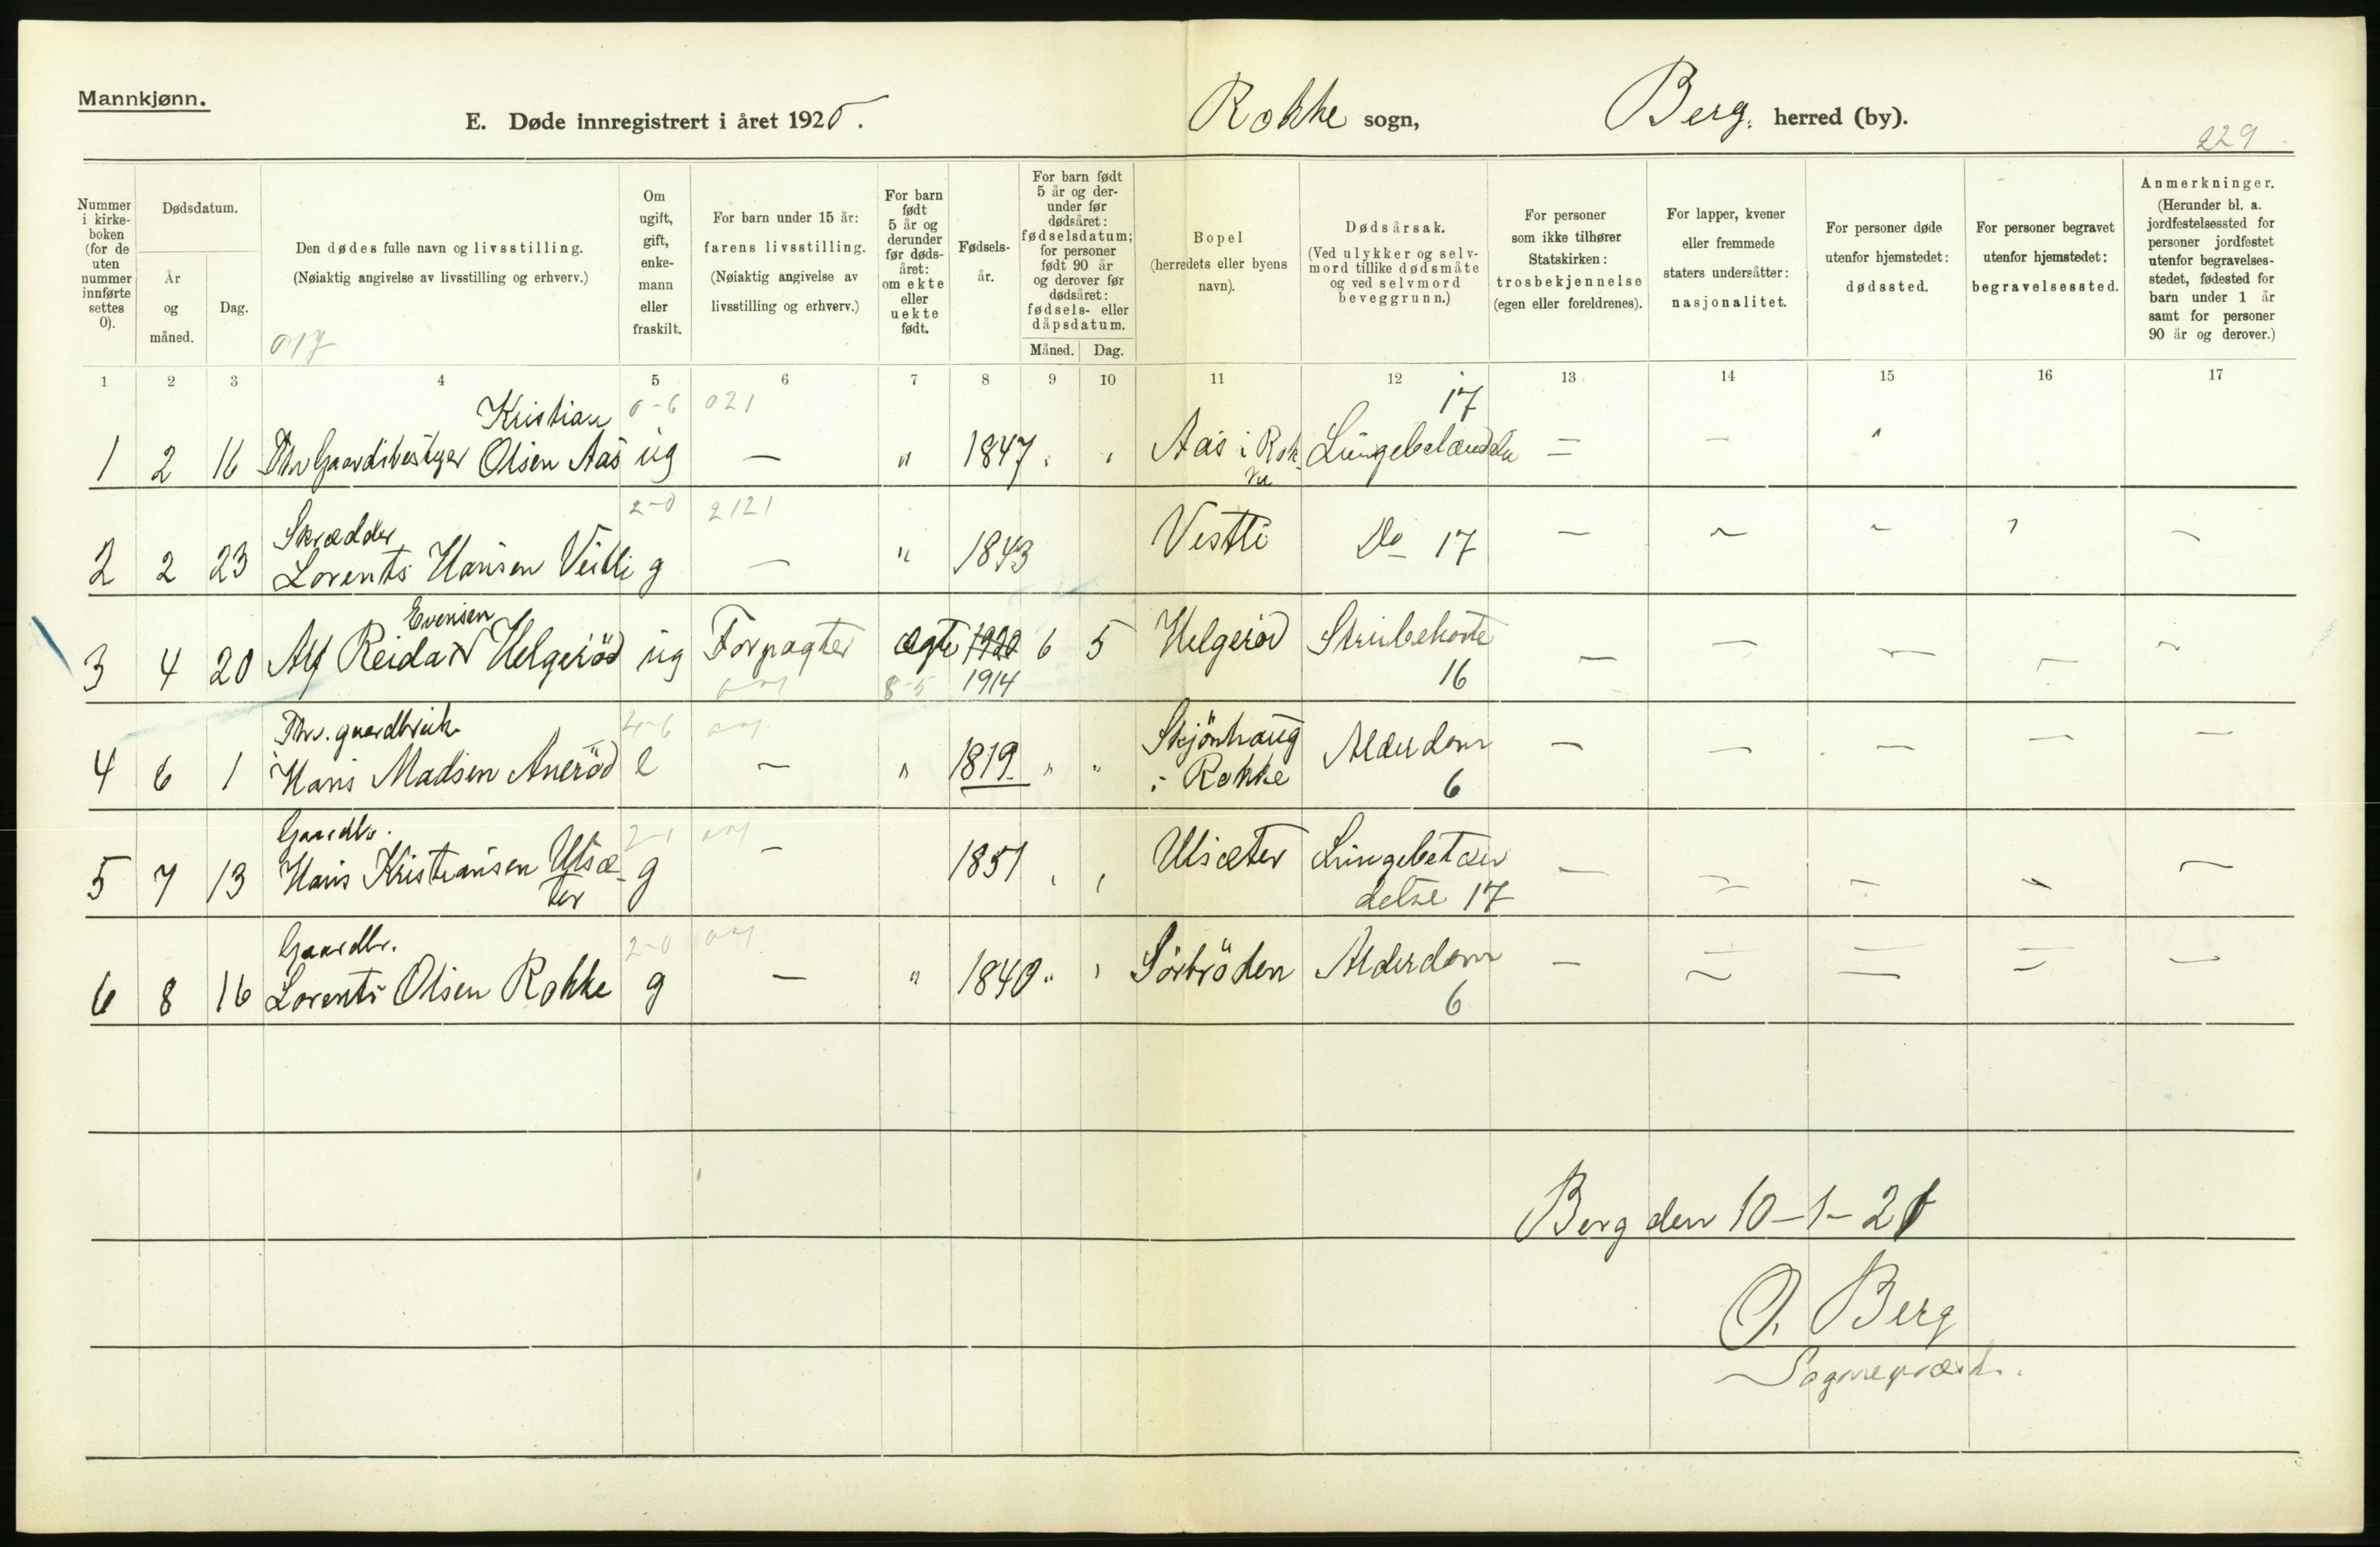 Mannkjønn.
E. Døde innregistrert i året 1920.
Rokke sogn,
Berg. herred (by).
229
Nummer i kirke- boken (for de uten nummer innførte settes 0).
Dødsdatum.
År og måned.
Dag.
Den dødes fulle navn og livsstilling.
(Nøiaktig angivelse av livsstilling og erhverv.)
Om ugift, gift, enke- mann eller fraskilt.
For barn under 15 år: farens livsstilling.
(Nøiaktig angivelse av livsstilling og erhverv.)
For barn født 5 år og derunder før døds- året: om ekte eller uekte født.
Fødsels- år.
For barn født 5 år og der- under før dødsåret: fødselsdatum; for personer født 90 år og derover før dødsåret: fødsels- eller dåpsdatum.
Måned. Dag.
Bopel
(herredets eller byens navn).
Dødsårsak.
(Ved ulykker og selv- mord tillike dødsmåte og ved selvmord beveggrunn.)
For personer som ikke tilhører Statskirken: trosbekjennelse (egen eller foreldrenes).
For lapper, kvener eller fremmede staters undersåtter: nasjonalitet.
For personer døde utenfor hjemstedet: dødssted.
For personer begravet utenfor hjemstedet: begravelsessted.
Anmerkninger.
(Herunder bl. a. jordfestelsessted for personer jordfestet utenfor begravelses- stedet, fødested for barn under 1 år samt for personer 90 år og derover.)
1 2 3 4 5 6 7 8 9 10 11 12 13 14 15 16 17
Kristian 0-6 021 17
1 2 16 Olsen Aas ug — " 1847 Aas i Rok- — —
2-0 2121
Skrædder
2 2 23 Lorents Hansen Vestli g — " 1843 Vestli Do 17 — — — —
Evensen
3 4 20 Alf Reidar Helgeröd ug Forpagter ægte 1920 6 5 Helgeröd Strubehoste — — — — —
8-5 1914 16
4-6
4 6 1 Hans Madsen Aneröd e — " 1819 " " Skjönhaug Alderdom — — — — —
i Rokke 6
Gaardbr. 2-1
5 7 13 Hans Kristiansen Ulsæ- g — 1851 Ulsæter Lungebetæn — — — — —
ter delse 17
Gaardbr. 2-0
6 8 16 Lorents Olsen Rokke g — " 1840 " Sörbröden Alderdom — — — — —
6
Berg den 10-1-21
O. Berg
Sogneprest.